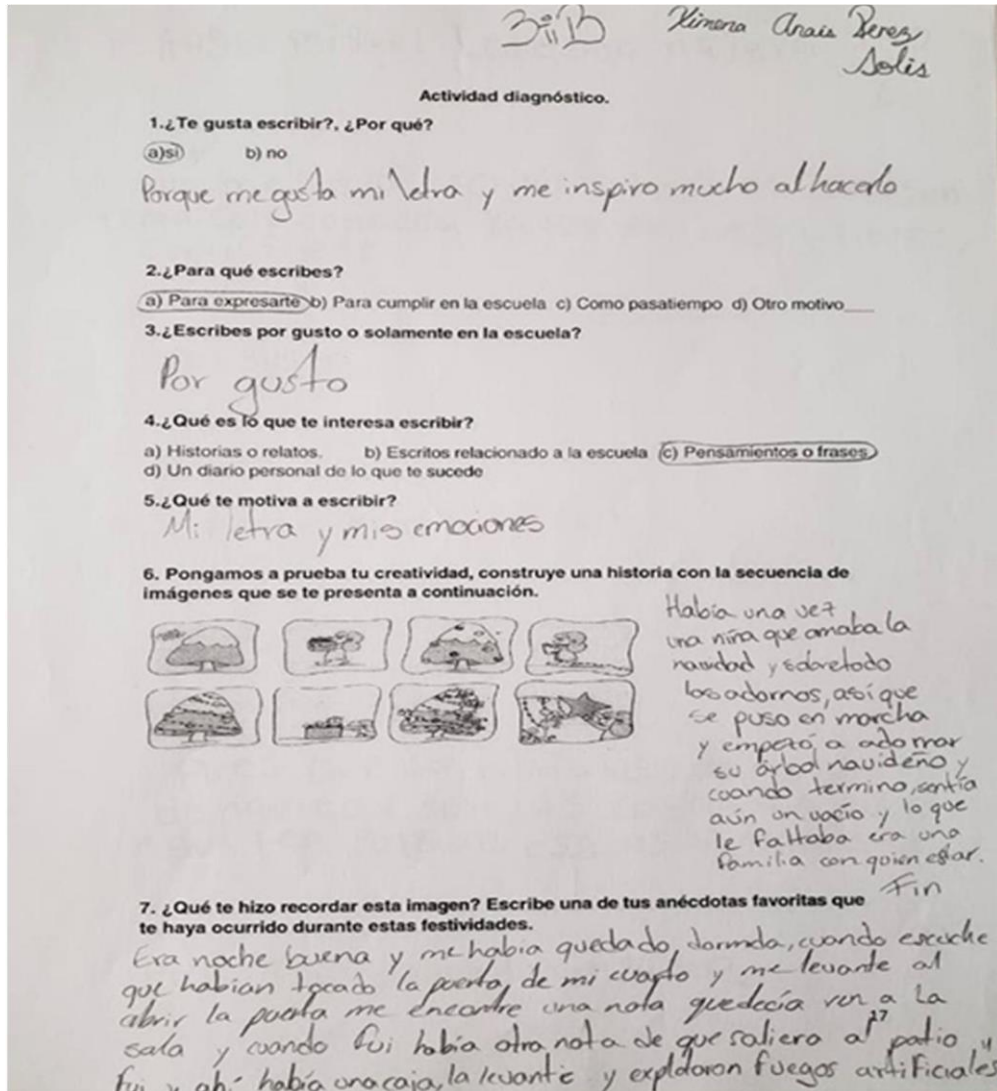 3º"B" Ximena Anais Perez
Solis
Actividad diagnóstico.
1.¿Te gusta escribir?, ¿Por qué?
a)si b) no
Porque me gusta mi letra y me inspiro mucho al hacerlo
2.¿Para qué escribes?
a) Para expresarte b) Para cumplir en la escuela c) Como pasatiempo d) Otro motivo____
3.¿Escribes por gusto o solamente en la escuela?
Por gusto
4.¿Qué es lo que te interesa escribir?
a) Historias o relatos. b) Escritos relacionado a la escuela c) Pensamientos o frases
d) Un diario personal de lo que te sucede
5.¿Qué te motiva a escribir?
Mi letra y mis emociones
6. Pongamos a prueba tu creatividad, construye una historia con la secuencia de
imágenes que se te presenta a continuación.
Había una vez
una niña que amaba la
navidad y sobretodo
los adornos, así que
se puso en marcha
y empezó a adornar
su árbol navideño y
cuando termino, sentía
aún un vacío y lo que
le faltaba era una
familia con quien estar.
Fin
7. ¿Qué te hizo recordar esta imagen? Escribe una de tus anécdotas favoritas que
te haya ocurrido durante estas festividades.
Era noche buena y me había quedado dormida, cuando escuche
que habian tocado la puerta de mi cuarto y me levante al
abrir la puerta me encontre una nota que decía ven a la
17
sala y cuando fui había otra nota de que saliera al patio y
fui y ahí había una caja, la levante y explotaron fuegos artificiales